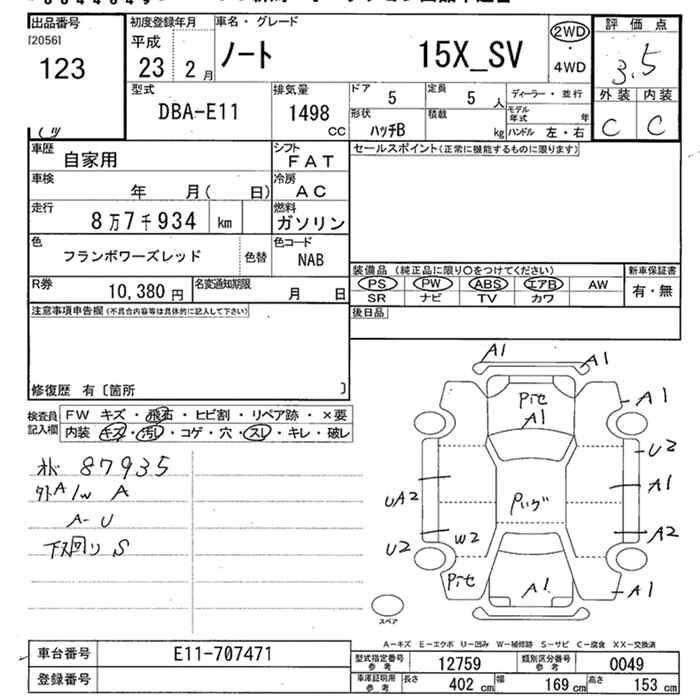 出品番号
[2056]
123
初度登録年月
平成
23 2月
車名・グレード
ノート 15X_SV
2WD
・
4WD
評価点
3.5
外装 内装
C C
型式
DBA-E11
排気量
1498
CC
ドア
5
定員
5 人
形状
ハッチB
積載
kg
ディーラー・並行
モデル年式 年
ハンドル 左・右
車歴
自家用
シフト
FAT
車検
年 月( 日)
冷房
AC
走行
8万7千934 km
燃料
ガソリン
色
フランボワーズレッド
色替
色コード
NAB
R券
10,380円
名変通知期限
月 日
セールスポイント(正常に機能するものに限ります)
装備品(純正品に限り○をつけてください)
PS PW ABS エアB AW
SR ナビ TV カワ
新車保証書
有・無
後日品
注意事項申告欄(不具合内容等は具体的に記入して下さい)
修復歴 有〔箇所 〕
検査員記入欄
FW キズ・飛石・ヒビ割・リペア跡・×要
内装 キズ・汚レ・コゲ・穴・スレ・キレ・破レ
87935
外A/W A
A-U
下回り S
A1
A1
Pセ
A1
A1
U2
A1
UA2
Pいグ
A2
U2
W2
Pセ
A1
A1
スペア
A-キズ E-エクボ U-凹み W-補修跡 S-サビ C-腐食 XX-交換済
車台番号
E11-707471
登録番号
型式指定番号
参考
12759
類別区分番号
参考
0049
車庫証明用
参考
長さ 402 cm
幅 169 cm
高さ 153 cm